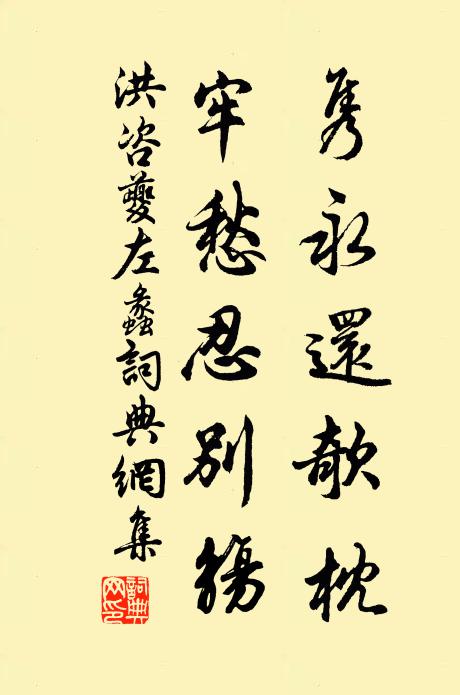 隽永還欹枕
牢愁忍別觴
洪咨夔左蠡詞典網集
詞典網印